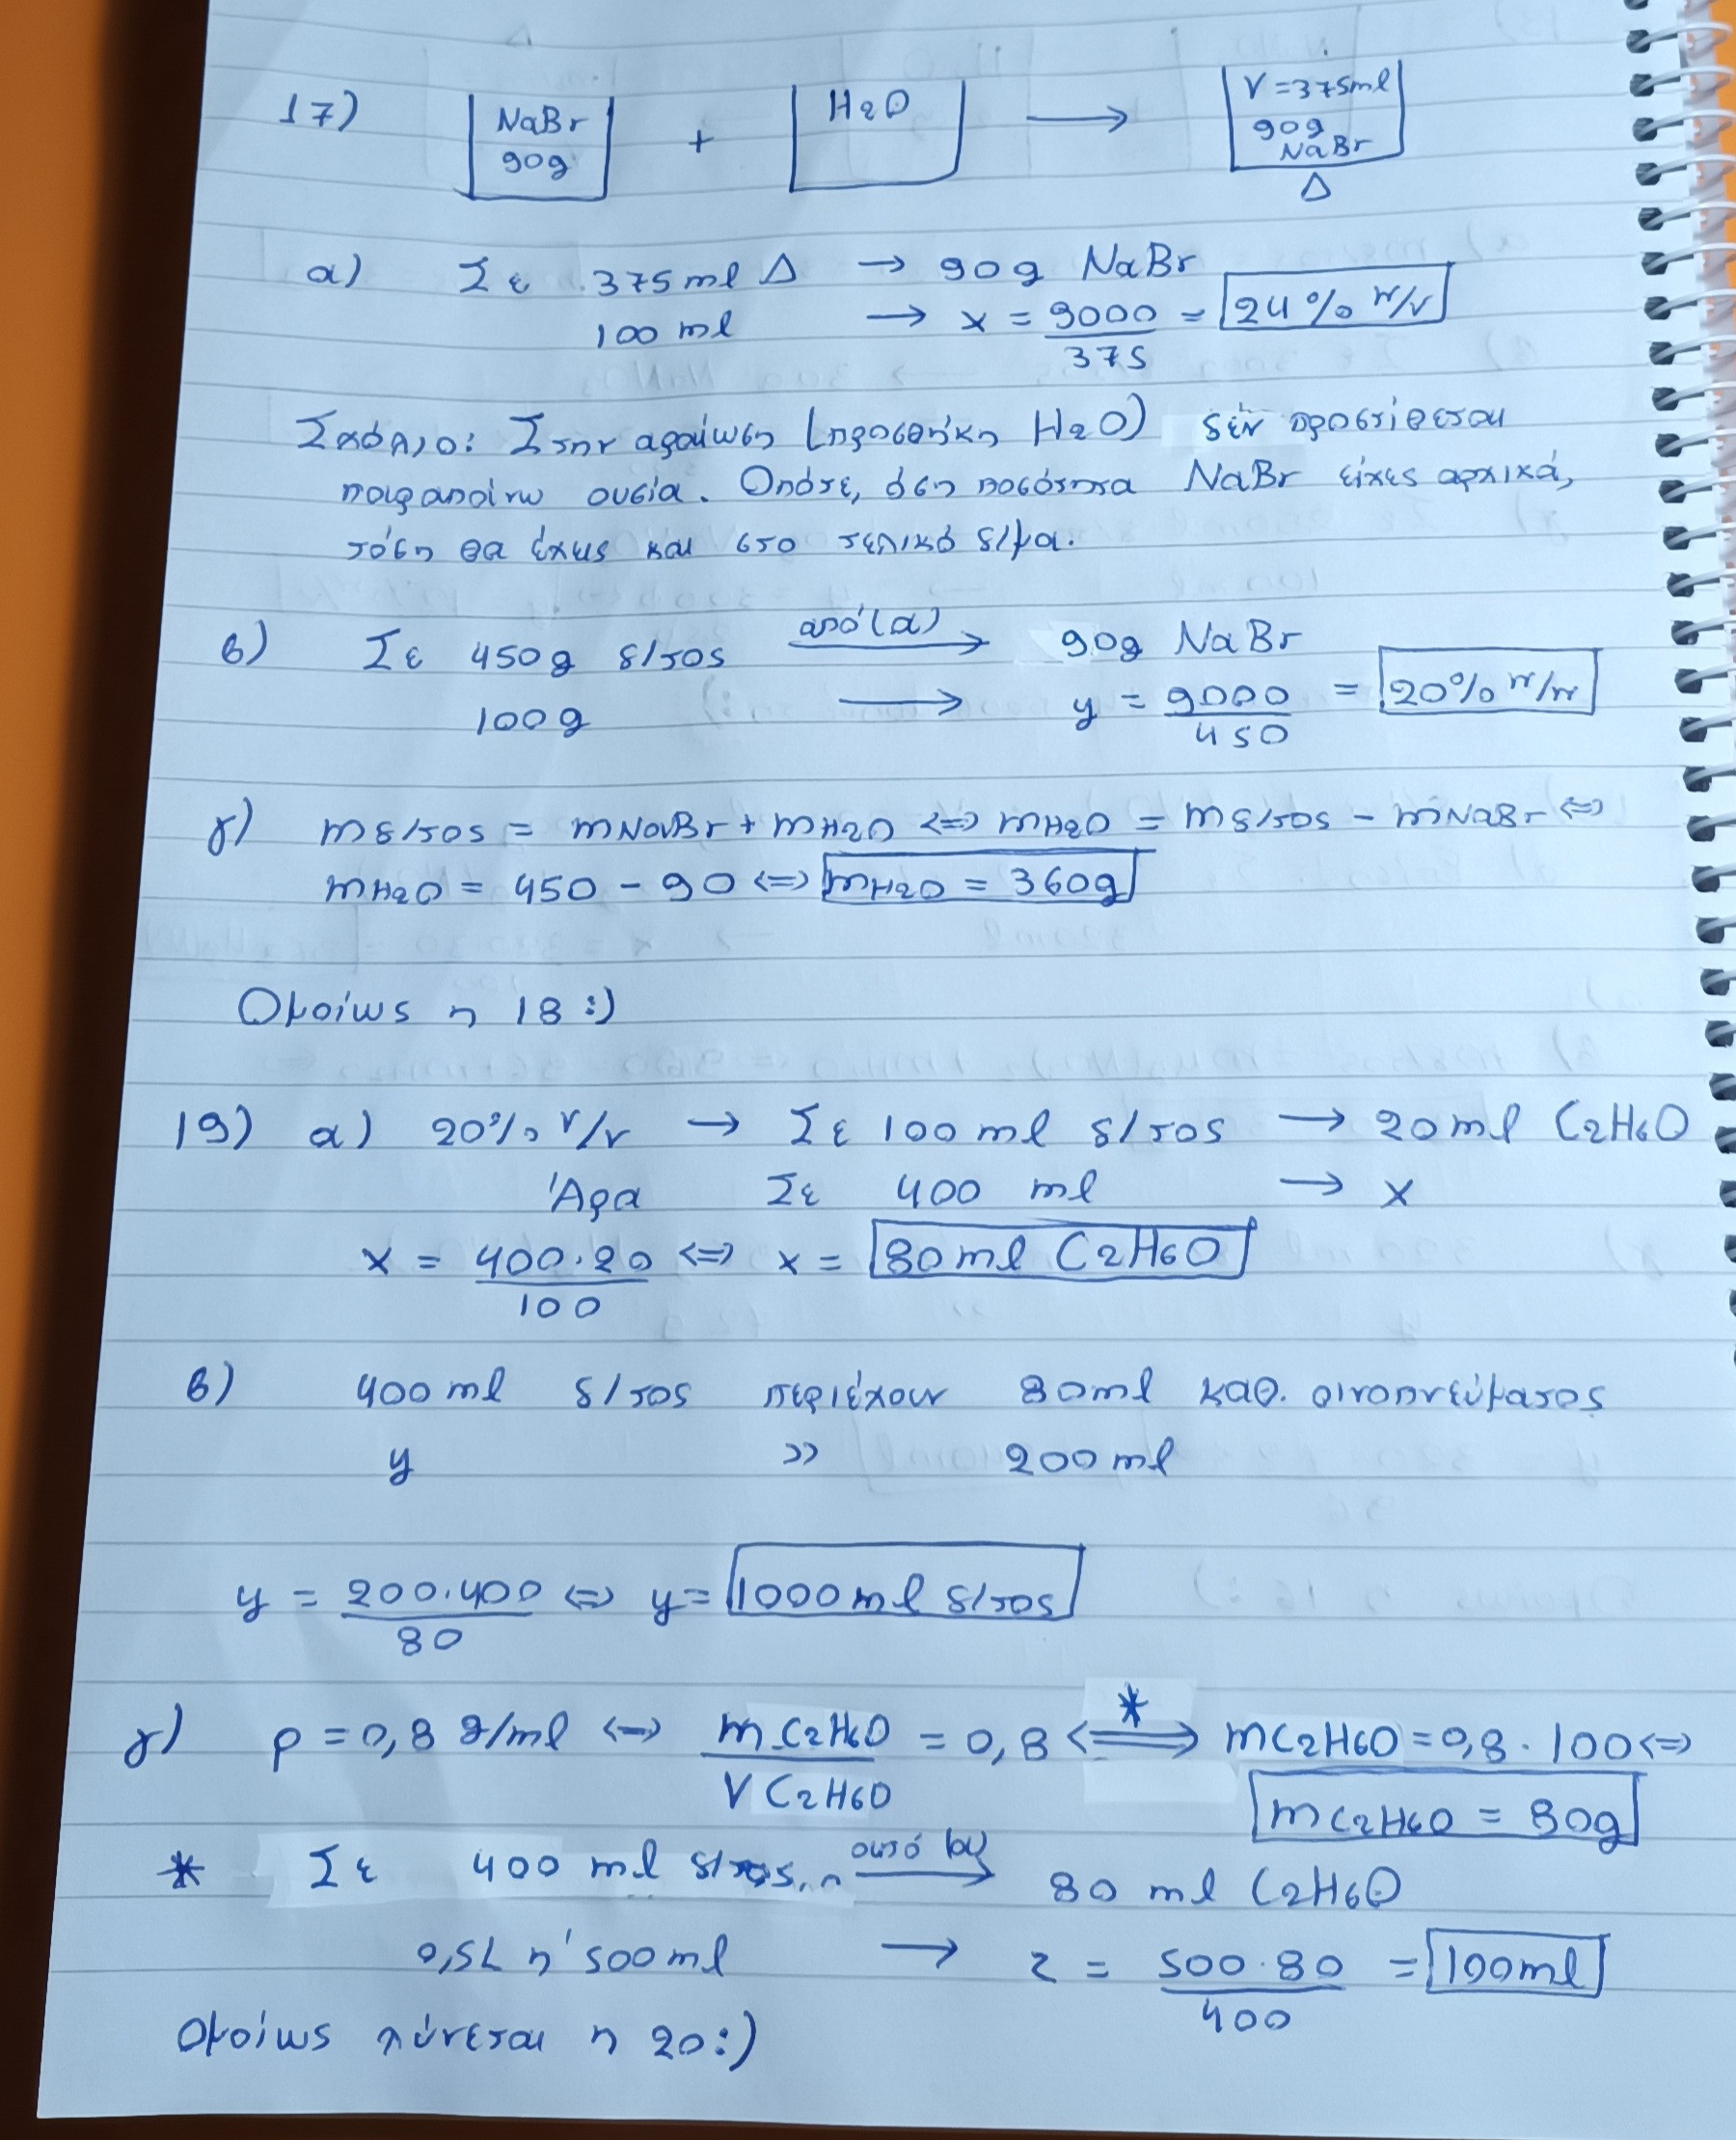 17) NaBr 90g + H2O → V = 375ml 90g NaBr
Δ
α) Σε 375 ml Δ → 90g NaBr
100 ml → x = 9000/375 = 24% w/v
Σχόλιο: Στην αραίωση (προσθήκη H2O) δεν προστίθεται
παραπάνω ουσία. Οπότε, όση ποσότητα NaBr είχες αρχικά,
τόση θα έχεις και στο τελικό δ/μα.
β) Σε 450g δ/τος από (α) → 90g NaBr
100g → y = 9000/450 = 20% w/w
γ) mδ/τος = mNaBr + mH2O <=> mH2O = mδ/τος - mNaBr <=>
mH2O = 450 - 90 <=> mH2O = 360g
Ομοίως η 18 :)
19) α) 20% v/v → Σε 100 ml δ/τος → 20 ml C2H6O
Άρα Σε 400 ml → x
x = 400·20/100 <=> x = 80ml C2H6O
β) 400 ml δ/τος περιέχουν 80ml καθ. οινοπνεύματος
y >> 200 ml
y = 200·400/80 <=> y = 1000 ml δ/τος
γ) ρ = 0,8 g/ml <=> mC2H6O/VC2H6O = 0,8 <=*=> mC2H6O = 0,8 · 100 <=>
mC2H6O = 80g
* Σε 400 ml δ/τος → 80 ml C2H6O
0,5L η' 500 ml → z = 500·80/400 = 100ml
Ομοίως λύνεται η 20 :)